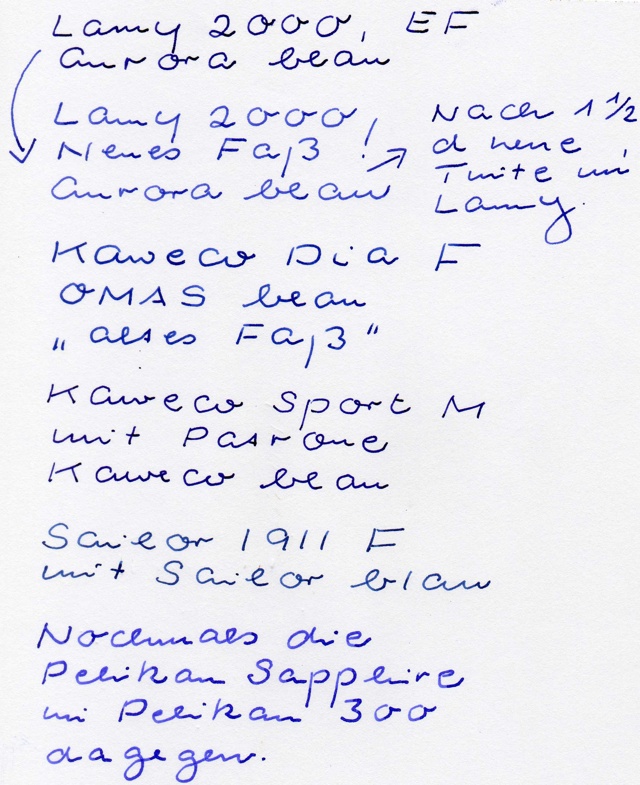 Lamy 2000, EF
Aurora blau
Lamy 2000,
Neues Faß!
Aurora blau
Nach 1 1/2
d neue
Tinte im
Lamy.
Kaweco Dia F
OMAS blau
„altes Faß"
Kaweco Sport M
mit Patrone
Kaweco blau
Sailor 1911 F
mit Sailor blau
Nochmals die
Pelikan Sapphire
im Pelikan 300
dagegen.